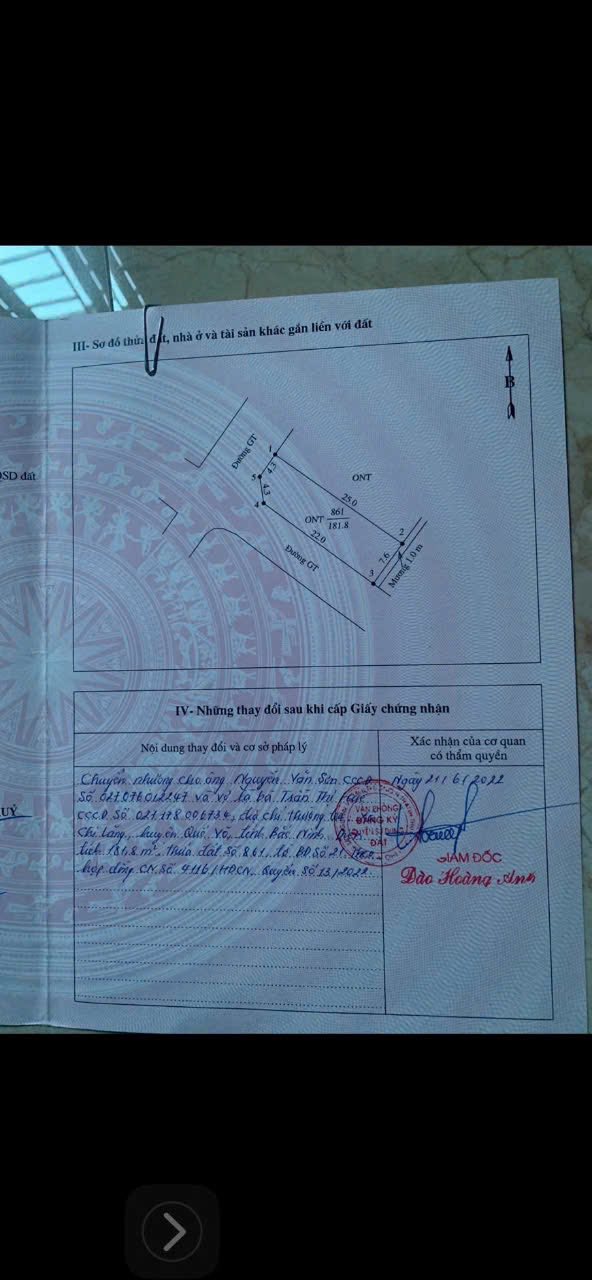 III- Sơ đồ thửa đất, nhà ở và tài sản khác gắn liền với đất
B
QSD đất
Đường GT
1
4.3
5
4.3
4
ONT
25.0
ONT 861
181.8
2
22.0
Đường GT
7.6
3
Mương 1.0 m
IV- Những thay đổi sau khi cấp Giấy chứng nhận
Nội dung thay đổi và cơ sở pháp lý
Xác nhận của cơ quan
có thẩm quyền
Chuyển nhượng cho ông Nguyễn Văn Sơn CCCD
Số 027076012247 và vợ là bà Trần Thị
CCCD Số 027178006734, địa chỉ
Chi Lăng, huyện Quế Võ, tỉnh Bắc Ninh, diện
tích 181,8 m², Thửa đất Số 861, tờ BĐ Số 21. Theo
hợp đồng CN Số 9116/HĐCN. Quyển Số 13/2022.
Ngày 21/6/2022
VĂN PHÒNG
ĐĂNG KÝ
QUYỀN SỬ DỤNG
ĐẤT
GIÁM ĐỐC
Đào Hoàng Anh